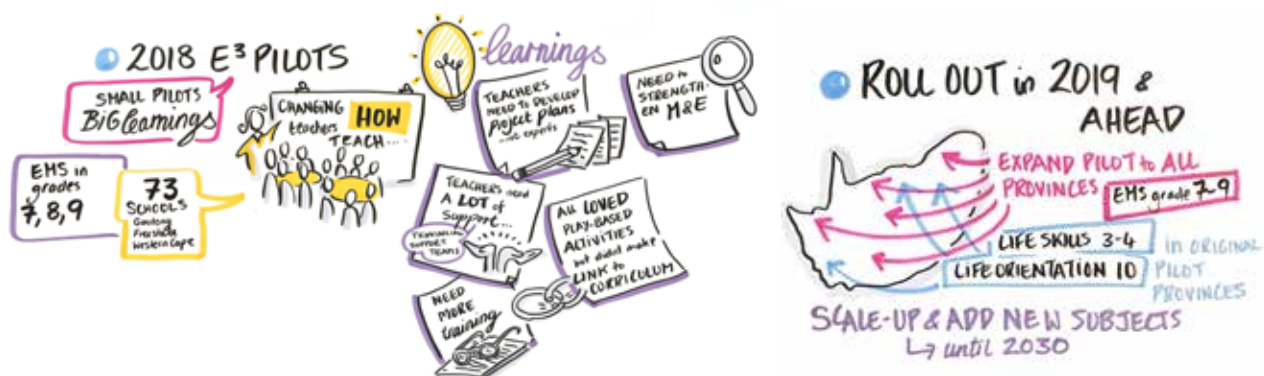 2018 E³ PILOTS
SMALL PILOTS
BIG learnings
EMS in
grades
7, 8, 9
73
SCHOOLS
Gauteng
Free State
Western Cape
CHANGING
teachers HOW
TEACH...
learnings
TEACHERS
NEED to DEVELOP
Project Plans
...not experts
NEED to
STRENGTH-
EN M&E
TEACHERS need
A LOT of
support...
TRAINING
SUPPORT
TEAMS
ALL LOVED
PLAY-BASED
ACTIVITIES
but didnt make
LINK to
CURRICULUM
NEED
MORE
training
ROLL OUT in 2019 &
AHEAD
EXPAND PILOT to ALL
PROVINCES
EMS grade 7-9
LIFE SKILLS 3-4
LIFE ORIENTATION 10
in ORIGINAL
PILOT
PROVINCES
SCALE-UP & ADD NEW SUBJECTS
↳ until 2030